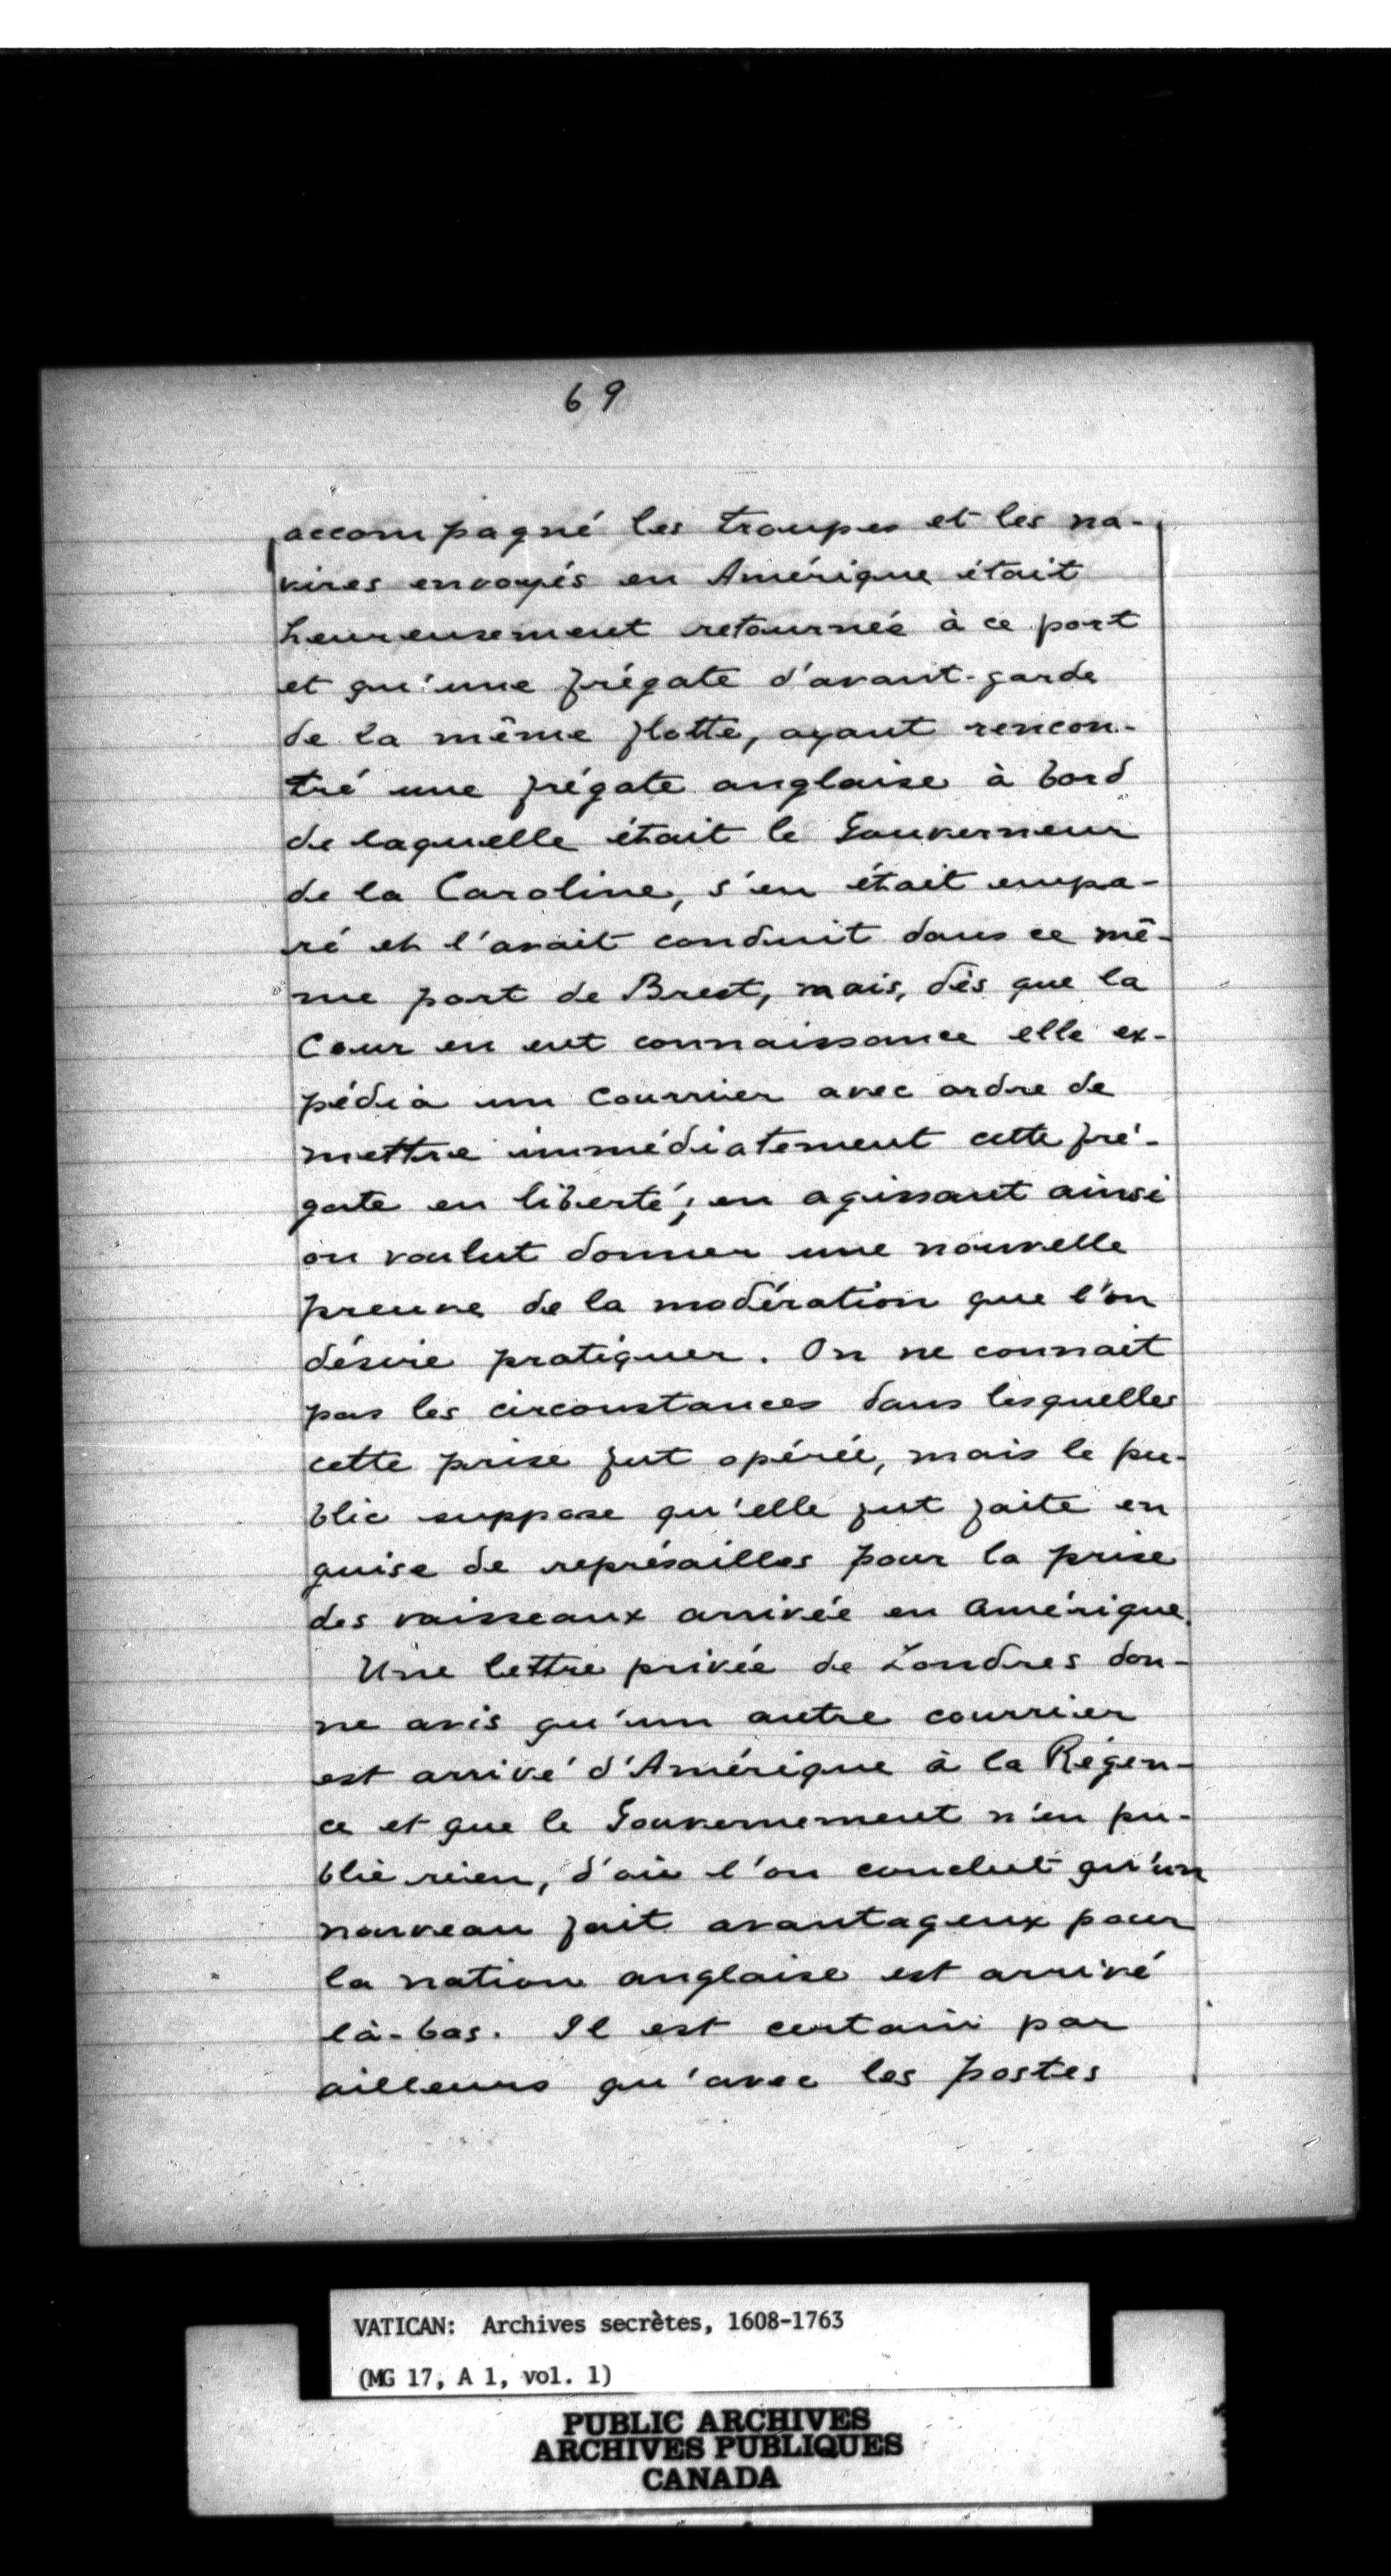 69
accompagné les troupes et les na-
vires envoyés en Amérique était
heureusement retournée à ce port
et qu'une frégate d'avant-garde
de la même flotte, ayant rencon-
tré une frégate anglaise à bord
de laquelle était le Gouverneur
de la Caroline, s'en était empa-
ré et l'avait conduit dans ce mê-
me port de Brest, mais, dès que la
Cour en eut connaissance elle ex-
pédia un Courrier avec ordre de
mettre immédiatement cette fré-
gate en liberté; en agissant ainsi
on voulut donner une nouvelle
preuve de la modération que l'on
désire pratiquer. On ne connait
pas les circonstances dans lesquelles
cette prise fut opérée, mais le pu-
blic suppose qu'elle fut faite en
guise de représailles pour la prise
des vaisseaux arrivée en Amérique.
Une lettre privée de Londres don-
ne avis qu'un autre courrier
est arrivé d'Amérique à la Régen-
ce et que le Gouvernement n'en pu-
blie rien, d'où l'on conclut qu'un
nouveau fait avantageux pour
la nation anglaise est arrivé
là-bas. Il est certain par
ailleurs qu'avec les postes
VATICAN: Archives secrètes, 1608-1763
(MG 17, A 1, vol. 1)
PUBLIC ARCHIVES
ARCHIVES PUBLIQUES
CANADA